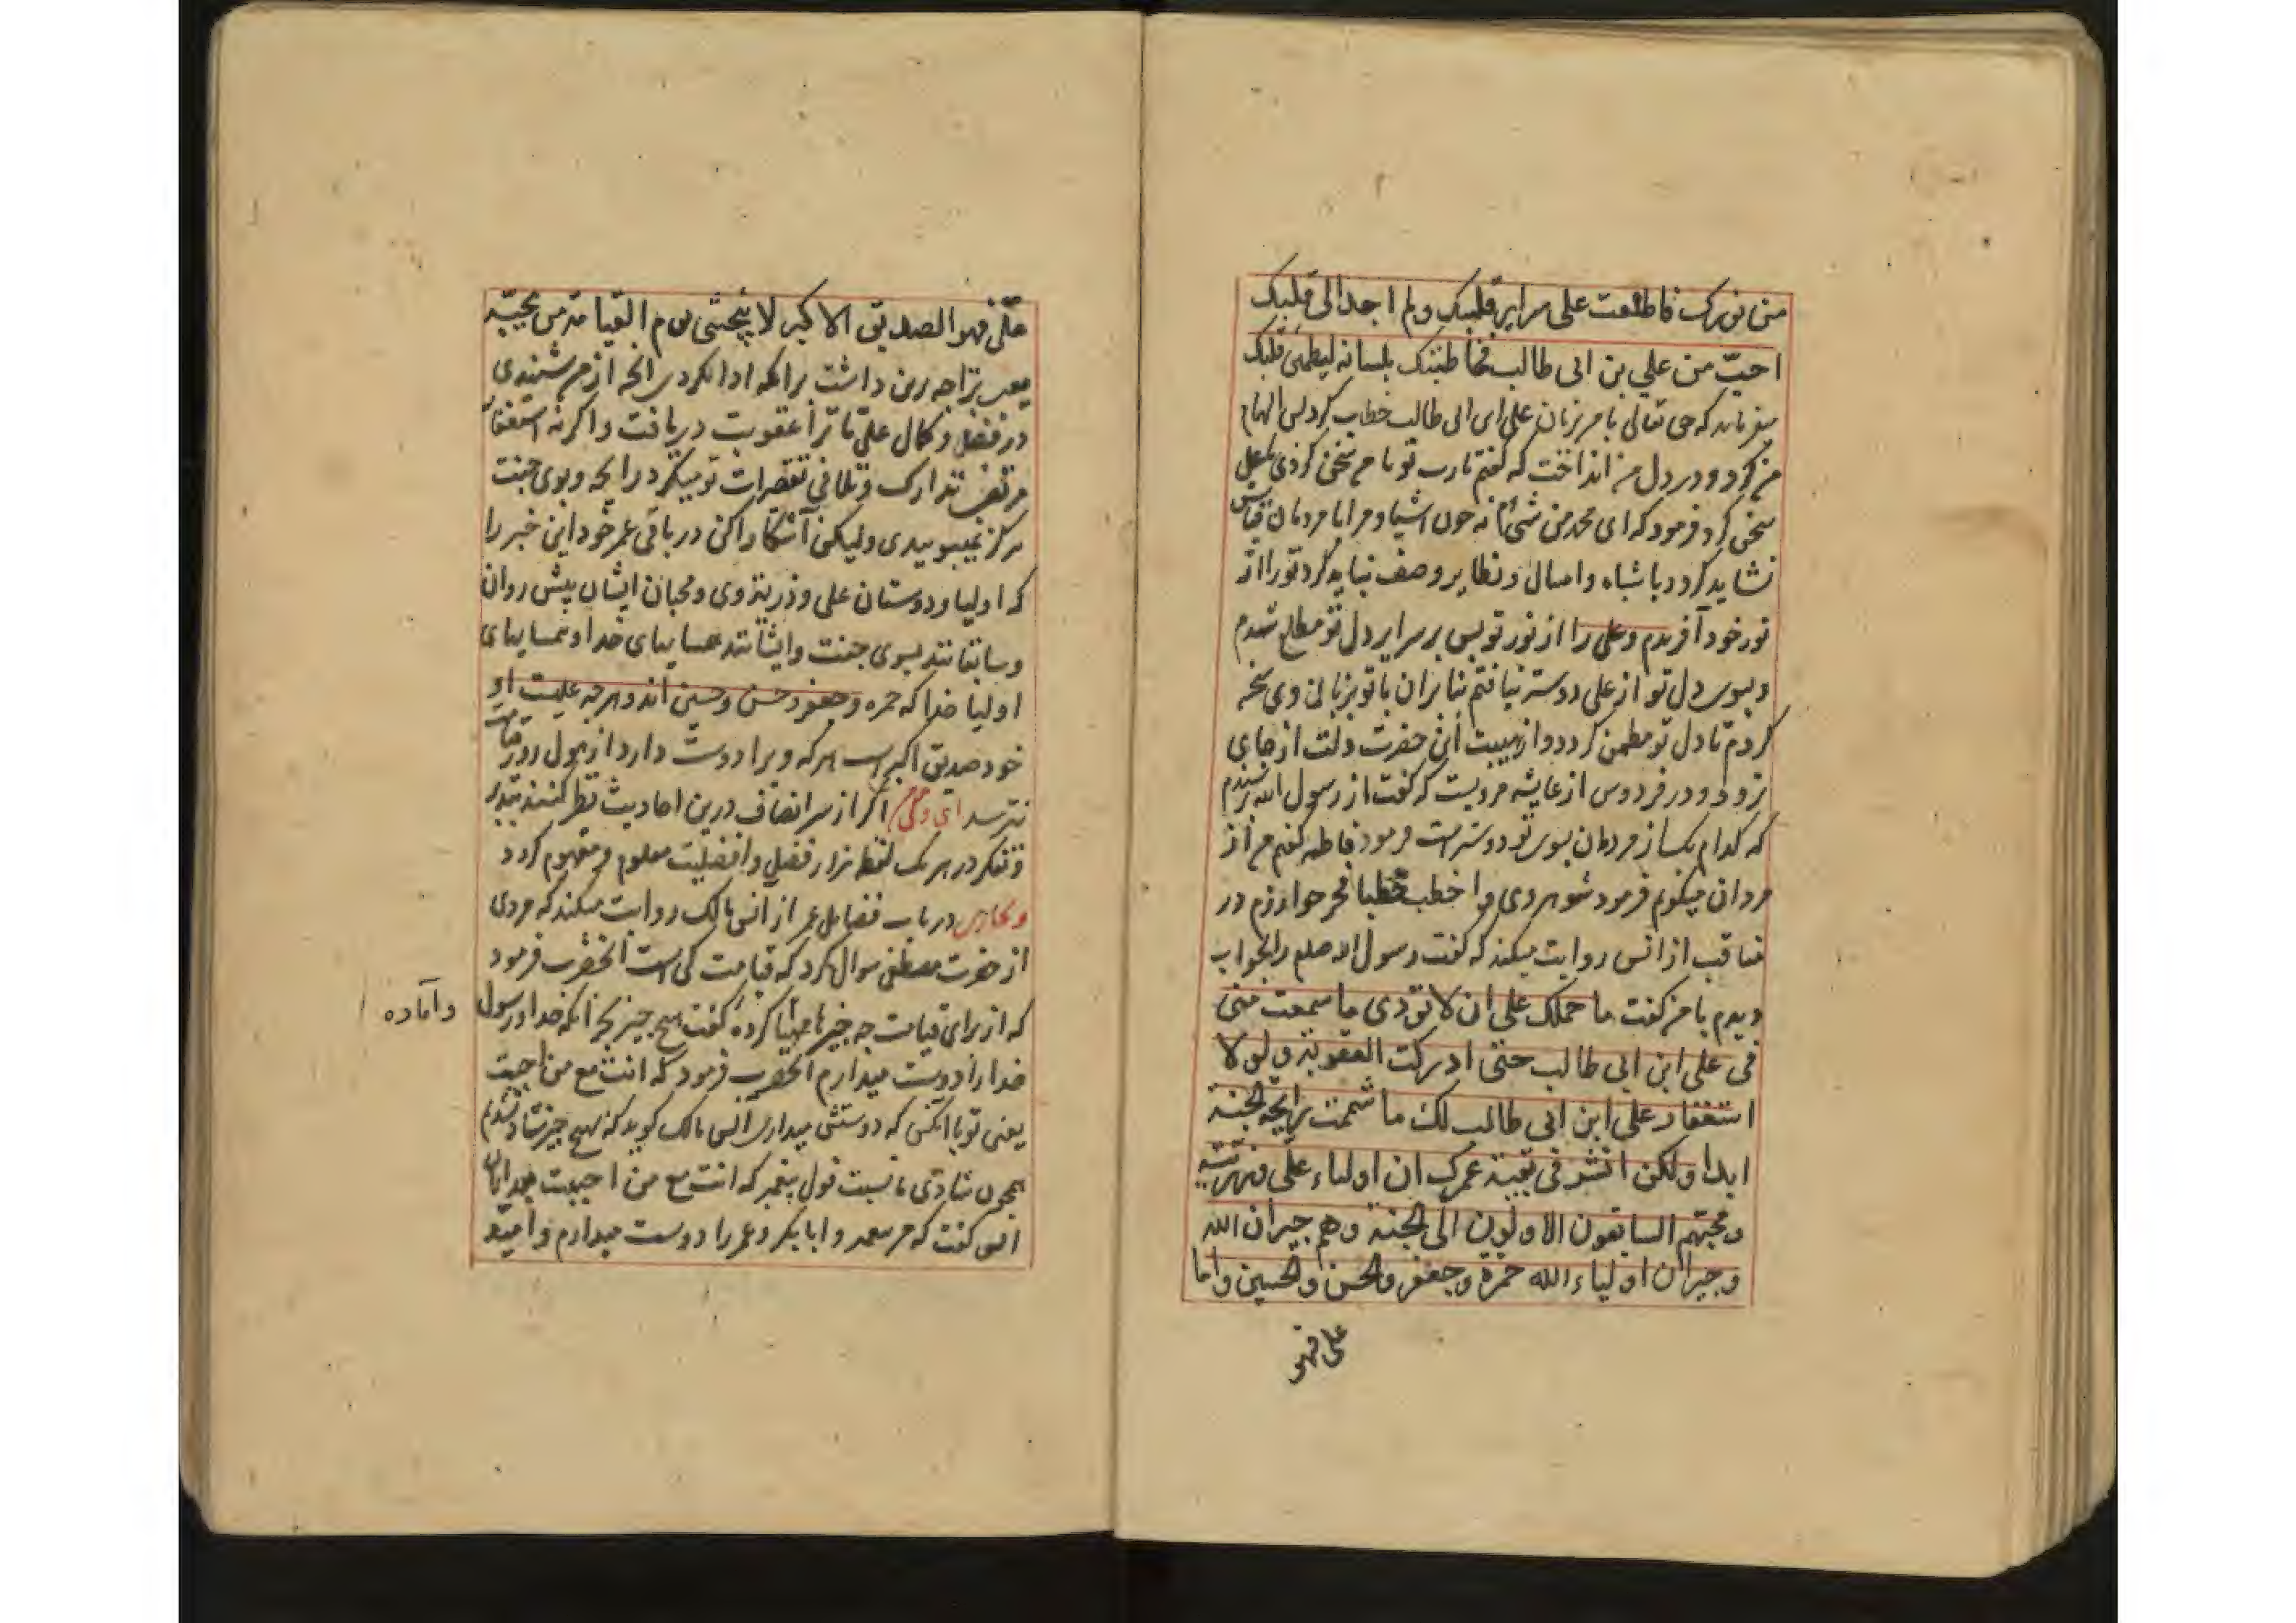 من نورک فاطلعت علی سرایر قلبک ولم اجد الی قلبک
احبّ من علي بن ابی طالب فخاطبتک بلسانه لیطمئن قلبک
میفرماید که حق تعالی با من بزبان علی ابن ابی طالب خطاب کرد پس الهام
من کرد و در دل من انداخت که گفتم یارب تو با من سخن کردی یا علی
سخن کرد فرمود که ای محمد من شئ ام نه چون اشیا و مرا با مردمان قیاس
نشاید کرد و باشباه و امثال و نظایر وصف نباید کرد تو را از
نور خود آفریدم و علی را از نور تو پس بر سرایر دل تو مطلع شدم
و بسوی دل تو از علی دوستر نیافتم بنابران با تو بزبان وی سخن
کردم تا دل تو مطمئن کردد و از هیبت این حضرت دلت از جای
نرود و در فردوس از عایشه مرویست که گفت از رسول الله پرسیدم
که کدام یک از مردمان بسوی تو دوستر است فرمود فاطمه گفتم من از
مردان میگویم فرمود شوهر وی و اخطب خطبا فخر خوارزم در
مناقب از انس روایت میکند که گفت رسول الله صلعم را بخواب
دیدم با من گفت ما حملک علی ان لا تودی ما سمعت منی
فی علی ابن ابی طالب حتی ادرکت العقوبة ولولا
استغفار علی ابن ابی طالب لک ما شممت رایحه الجنة
ابدا ولکن انشر فی بقیة عمرک ان اولیاء علی وذریته
ومحبیهم السابقون الاولون الی الجنة وهم جیران الله
وجیران اولیاء الله حمزة وجعفر والحسن والحسین واما
علی فهو
علی فهو الصدیق الاکبر لا یخشی یوم القیامة من یحبّه
یعنی ترا چه برین داشت برانکه ادا نکردی انچه از من شنیدی
در فضل و کمال علی تا ترا عقوبت دریافت و اکر نه استغفار
مرتضی تدارک و تلافی تقصیرات تو میکرد رایحه و بوی جنت
هرکز نمیبوییدی ولیکن آشکارا کن در باقی عمر خود این خبر را
که اولیا و دوستان علی و ذریة وی و محبان ایشان پیش روان
و سابقانند بسوی جنت و ایشانند همسایهای خدا و همسایهای
اولیا خدا که حمزه و جعفر و حسن و حسین اند و هرچه علیست او
خود صدیق اکبر است هرکه ویرا دوست دارد از هول روز قیامت
نترسد ای اگر از سر انصاف درین احادیث نظر کنند بتدبر
و تفکر در هر یک لفظ هزار فضل و افضلیت معلوم و مفهوم کردد
و بخاری در باب فضایل عمر از انس مالک روایت میکند که مردی
از حضرت مصطفی سوال کرد که قیامت کی است انحضرت فرمود
که از برای قیامت چه چیز مهیا کرده گفت هیچ چیز بجز انکه خدا و رسول
وآماده
خدا را دوست میدارم انحضرت فرمود که انت مع من احببت
یعنی تو با انکس که دوستش میداری انس مالک کوید که بهیچ چیز شاد نشدیم
همچون شادی ما بسبب قول پیغمبر که انت مع من احببت
انس گفت که من پیغمبر و ابابکر و عمر را دوست میدارم و امید